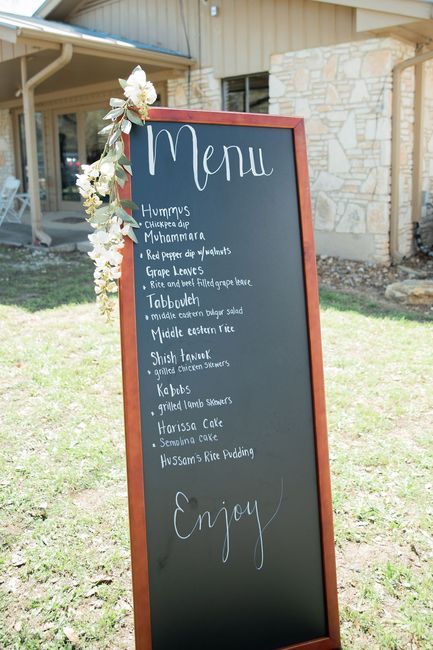 Menu
Hummus
• Chickpea dip
Muhammara
• Red pepper dip w/walnuts
Grape Leaves
• Rice and beef filled grape leave
Tabbouleh
• middle eastern bulgur salad
Middle eastern rice
Shish tawook
• grilled chicken skewers
Kabobs
• grilled lamb skewers
Harissa Cake
• Semolina cake
Hussam's Rice Pudding
Enjoy